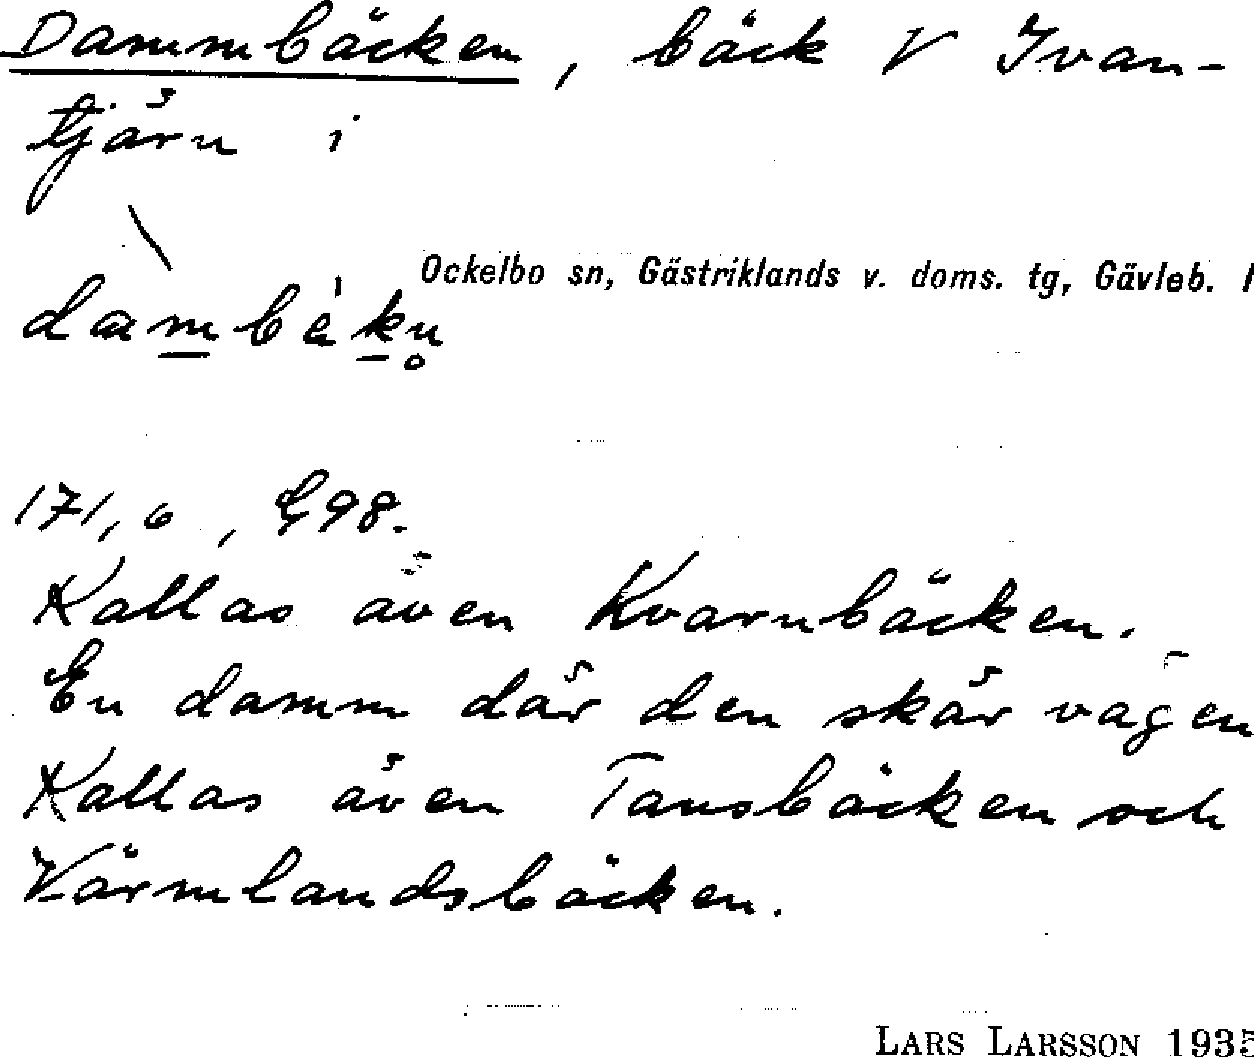 Dammbäcken, bäck V Ivan-
tjärn i
Ockelbo sn, Gästriklands v. doms. tg, Gävleb. l
dambèkn̥
171,6, G98.
Kallas även Kvarnbäcken.
En damm där den skär vägen
Kallas även Tansbäcken och
Värmlandsbäcken.
LARS LARSSON 1935